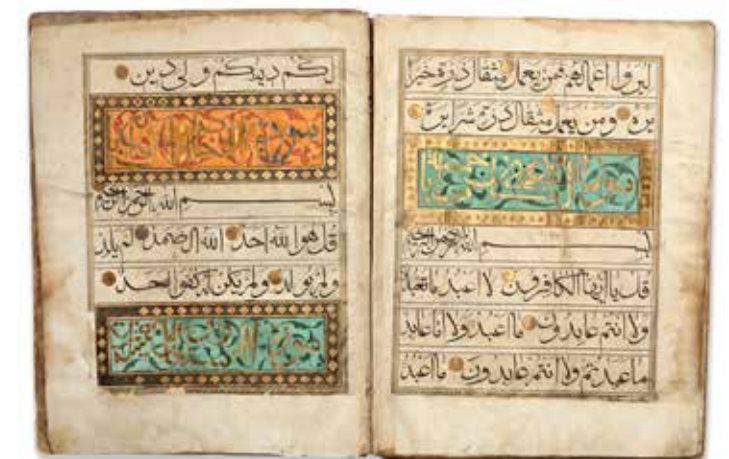 ليروا اعمالهم فمن يعمل مثقال ذرة خيرا
يره ومن يعمل مثقال ذرة شرا يره
سورة
بسم الله الرحمن الرحيم
قل يا ايها الكافرون لا اعبد ما تعبد
ولا انتم عابدون ما اعبد ولا انا عابد
ما عبدتم ولا انتم عابدون ما اعبد
لكم دينكم ولي دين
سورة
بسم الله الرحمن الرحيم
قل هو الله احد الله الصمد لم يلد
ولم يولد ولم يكن له كفوا احد
سورة